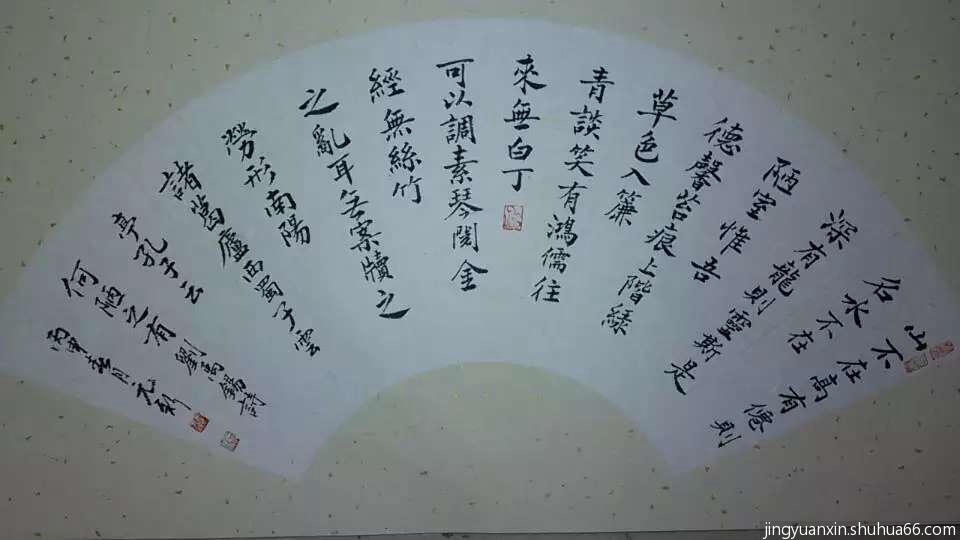 山不在高有僊則
名水不在
深有龍則靈斯是
陋室惟吾
德馨苔痕上階綠
草色入簾
青談笑有鴻儒往
來無白丁
可以調素琴閱金
經無絲竹
之亂耳無案牘之
勞形南陽
諸葛廬西蜀子雲
亭孔子云
何陋之有 劉禹錫詩
丙申春月元新
jingyuanxin.shuhua66.com